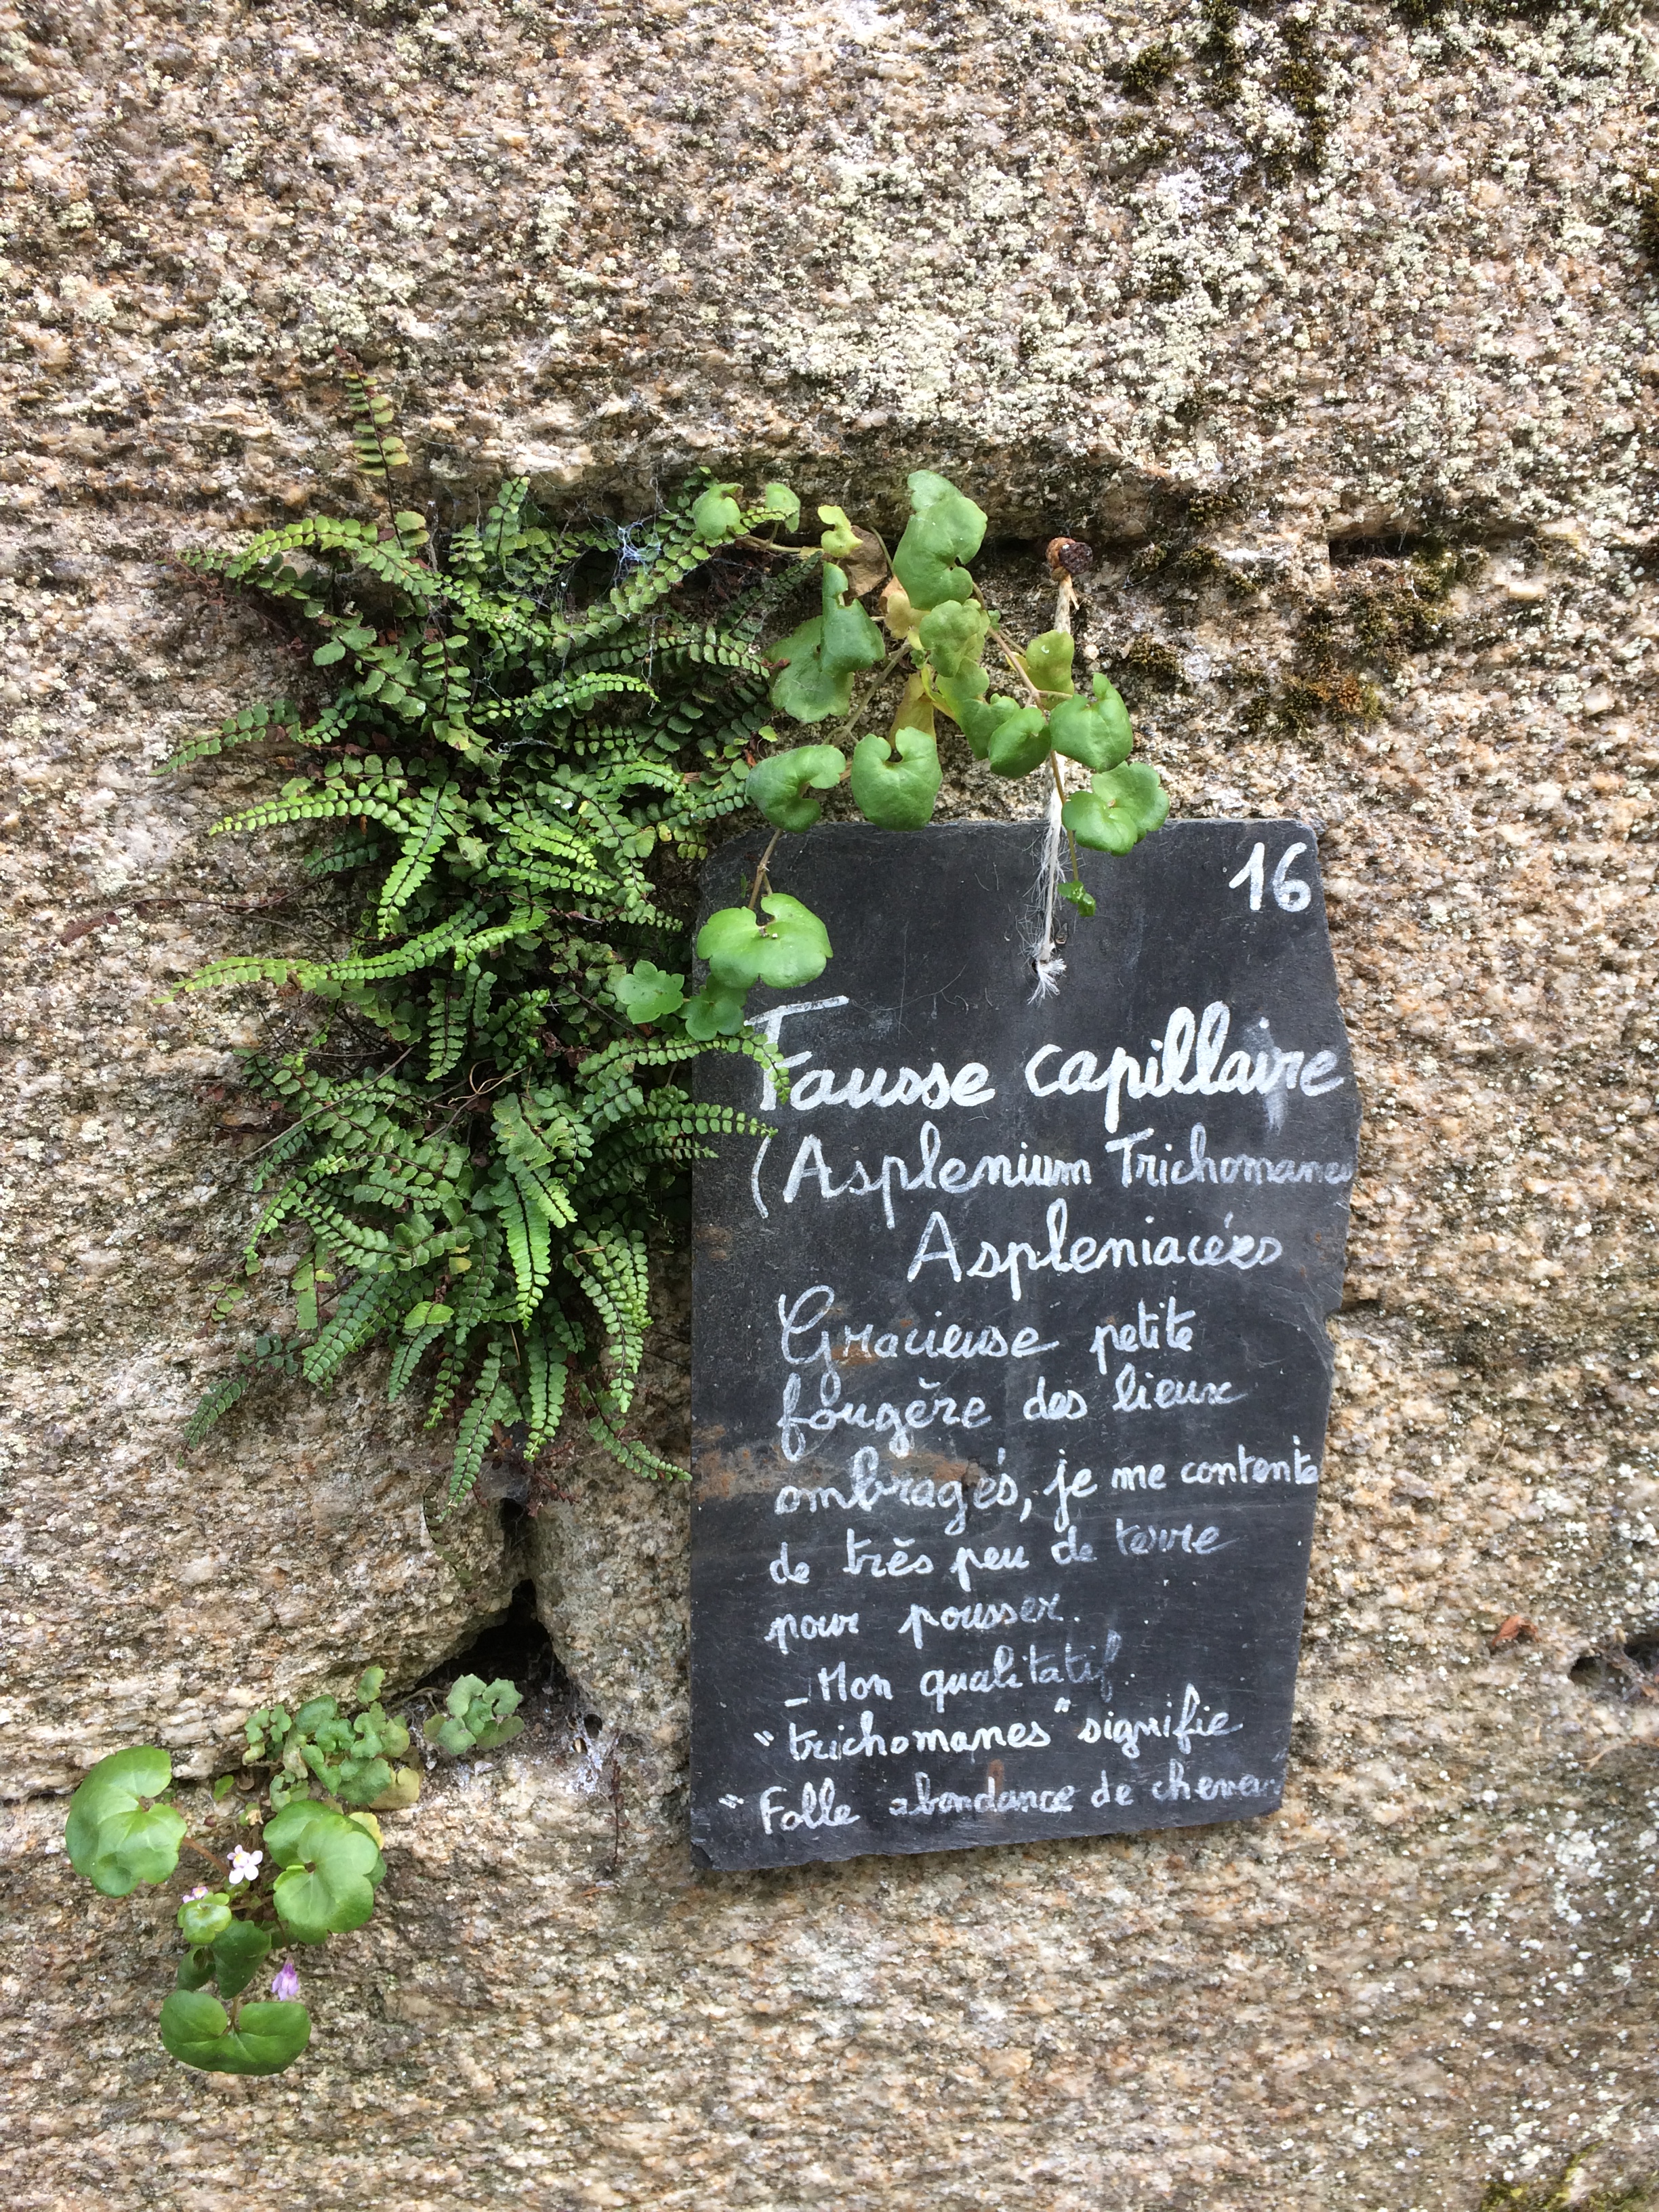 16
Fausse capillaire
(Asplenium Trichomanes
Aspleniacées
Gracieuse petite
fougère des lieux
ombragés, je me contente
de très peu de terre
pour pousser.
_ Mon qualitatif
"trichomanes" signifie
"Folle abondance de cheveux